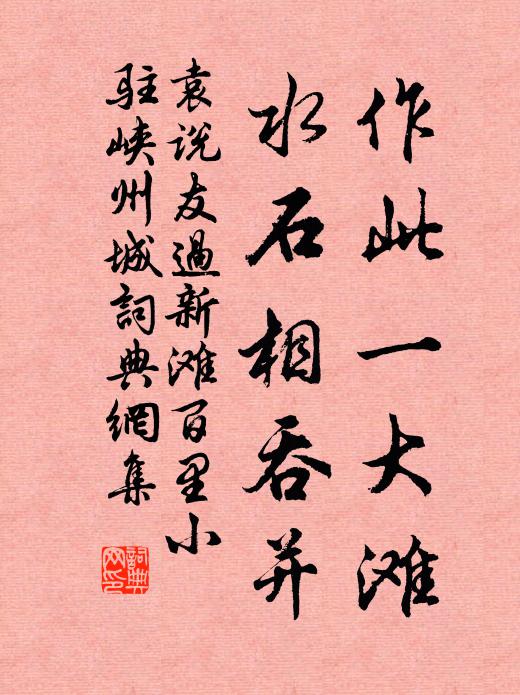 作此一大滩
水石相吞并
袁说友過新滩百里小
驻峡州城詞典網集
詞典
网印